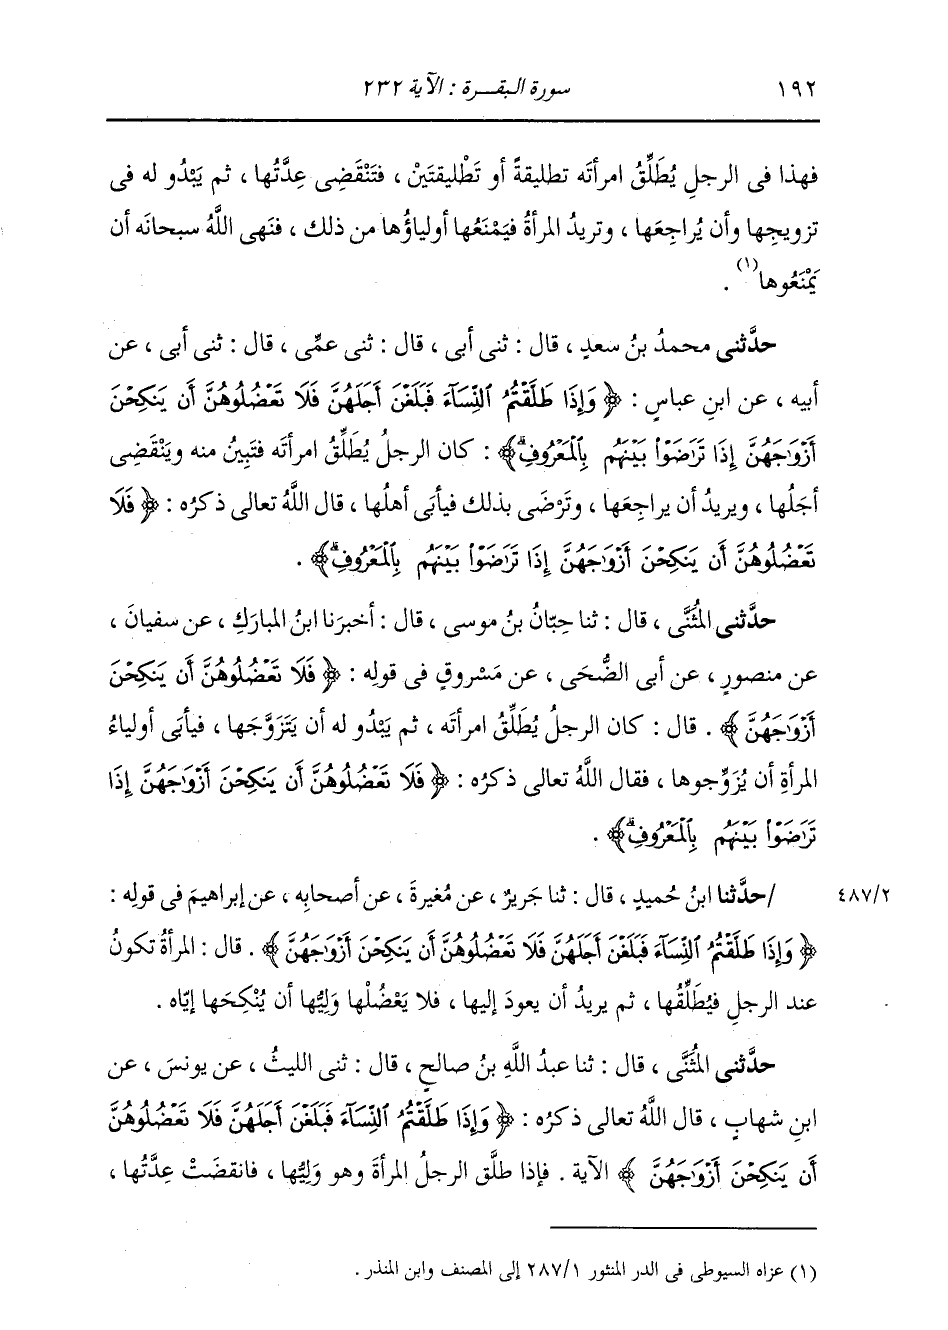 ١٩٢ سورة البقرة : الآية ٢٣٢
فهذا فى الرجلِ يُطَلِّقُ امرأتَه تطليقةً أو تَطْليقتَيْن ، فتَنْقَضِى عِدَّتُها ، ثم يَبْدُو له فى
تزويجِها وأن يُراجِعَها ، وتريدُ المرأةُ فيَمْنَعُها أولياؤُها من ذلك ، فنَهى اللَّهُ سبحانَه أن
يَمْنَعُوها(١) .
حدَّثنى محمدُ بنُ سعدٍ ، قال : ثنى أبى ، قال : ثنى عمِّى ، قال : ثنى أبى ، عن
أبيه ، عن ابنِ عباسٍ : ﴿ وَإِذَا طَلَّقْتُمُ النِّسَآءَ فَبَلَغْنَ أَجَلَهُنَّ فَلَا تَعْضُلُوهُنَّ أَن يَنكِحْنَ
أَزْوَٰجَهُنَّ إِذَا تَرَٰضَوْا۟ بَيْنَهُم بِالْمَعْرُوفِۗ ﴾ : كان الرجلُ يُطَلِّقُ امرأتَه فتَبِينُ منه ويَنْقَضِى
أجَلُها ، ويريدُ أن يراجِعَها ، وتَرْضَى بذلك فيأبَى أهلُها ، قال اللَّهُ تعالى ذكرُه : ﴿ فَلَا
تَعْضُلُوهُنَّ أَن يَنكِحْنَ أَزْوَٰجَهُنَّ إِذَا تَرَٰضَوْا۟ بَيْنَهُم بِالْمَعْرُوفِۗ ﴾ .
حدَّثنى المُثَنَّى ، قال : ثنا حِبّانُ بنُ موسى ، قال : أخبرَنا ابنُ المبارَكِ ، عن سفيانَ ،
عن منصورٍ ، عن أبى الضُّحَى ، عن مَسْروقٍ فى قولِه : ﴿ فَلَا تَعْضُلُوهُنَّ أَن يَنكِحْنَ
أَزْوَٰجَهُنَّ ﴾ . قال : كان الرجلُ يُطَلِّقُ امرأتَه ، ثم يَبْدُو له أن يَتَزَوَّجَها ، فيأبَى أولياءُ
المرأةِ أن يُزَوِّجوها ، فقال اللَّهُ تعالى ذكرُه : ﴿ فَلَا تَعْضُلُوهُنَّ أَن يَنكِحْنَ أَزْوَٰجَهُنَّ إِذَا
تَرَٰضَوْا۟ بَيْنَهُم بِالْمَعْرُوفِۗ ﴾ .
٤٨٧/٢ /حدَّثنا ابنُ حُميدٍ ، قال : ثنا جَريرٌ ، عن مُغيرةَ ، عن أصحابِه ، عن إبراهيمَ فى قولِه :
﴿ وَإِذَا طَلَّقْتُمُ النِّسَآءَ فَبَلَغْنَ أَجَلَهُنَّ فَلَا تَعْضُلُوهُنَّ أَن يَنكِحْنَ أَزْوَٰجَهُنَّ ﴾ . قال : المرأةُ تكونُ
عند الرجلِ فيُطَلِّقُها ، ثم يريدُ أن يعودَ إليها ، فلا يَعْضُلْها وَلِيُّها أن يُنْكِحَها إيّاه .
حدَّثنى المُثَنَّى ، قال : ثنا عبدُ اللَّهِ بنُ صالحٍ ، قال : ثنى الليثُ ، عن يونسَ ، عن
ابنِ شهابٍ ، قال اللَّهُ تعالى ذكرُه : ﴿ وَإِذَا طَلَّقْتُمُ النِّسَآءَ فَبَلَغْنَ أَجَلَهُنَّ فَلَا تَعْضُلُوهُنَّ
أَن يَنكِحْنَ أَزْوَٰجَهُنَّ ﴾ الآية . فإذا طلَّق الرجلُ المرأةَ وهو وَلِيُّها ، فانقضَتْ عِدَّتُها ،
(١) عزاه السيوطى فى الدر المنثور ٢٨٧/١ إلى المصنف وابن المنذر .